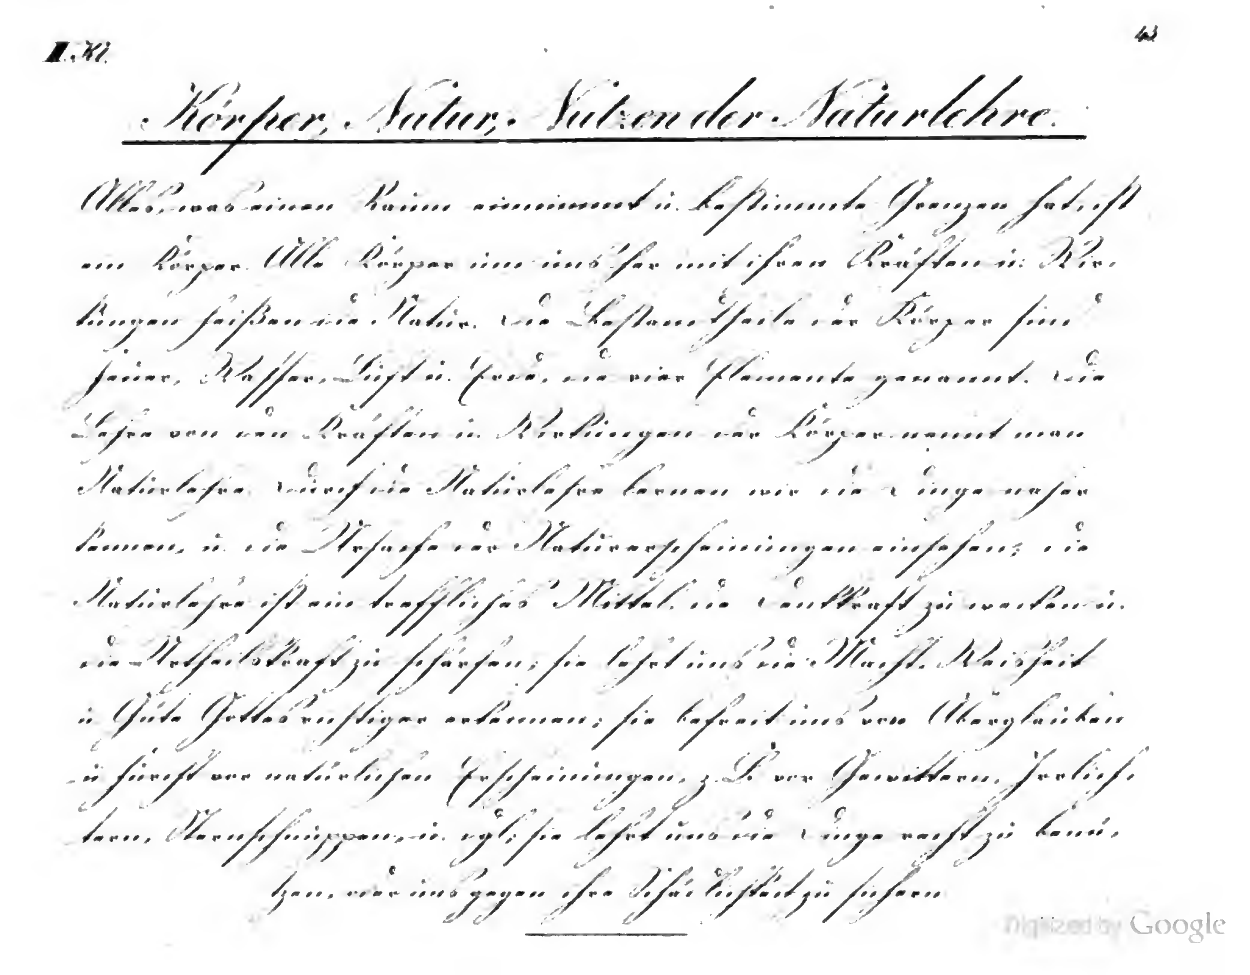 II. Kl. 43
Körper, Natur, Nutzen der Naturlehre.
Alles, was einen Raum einnimmt u. bestimmte Grenzen hat, ist
ein Körper. Alle Körper um uns her mit ihren Kräften u. Wir-
kungen heißen die Natur. Die Bestandtheile der Körper sind
Feuer, Wasser, Luft u. Erde, die vier Elemente genannt. Die
Lehre von den Kräften u. Wirkungen der Körper nennt man
Naturlehre. Durch die Naturlehre lernen wir die Dinge näher
kennen, u. die Ursache der Naturerscheinungen einsehen; die
Naturlehre ist ein treffliches Mittel, die Denkkraft zu wecken u.
die Urtheilskraft zu schärfen; sie lehrt uns die Macht, Weisheit
u. Güte Gottes richtiger erkennen; sie befreit uns von Aberglauben
u. Furcht vor natürlichen Erscheinungen, z. B. vor Gewittern, Irrlich-
tern, Sternschnuppen, u. dgl; sie lehrt uns die Dinge recht zu benü-
tzen, oder uns gegen ihre Schädlichkeit zu sichern.
Digitized by Google